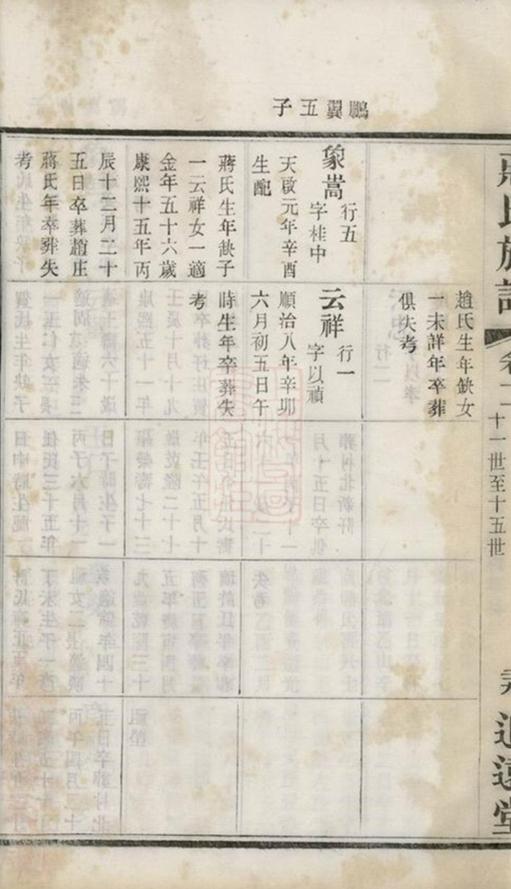 十一世至十五世
追遠堂
鵬翼五子
象嵩 行五
字桂中
天啟元年辛酉
生配
蔣氏生年缺子
一云祥女一適
金年五十六歲
康熙十五年丙
辰十二月二十
五日卒葬趙庄
蔣氏年卒葬失
考
趙氏生年缺女
一未詳年卒葬
俱失考
云祥 行一
字以禎
順治八年辛卯
六月初五日午
時生年卒葬失
考